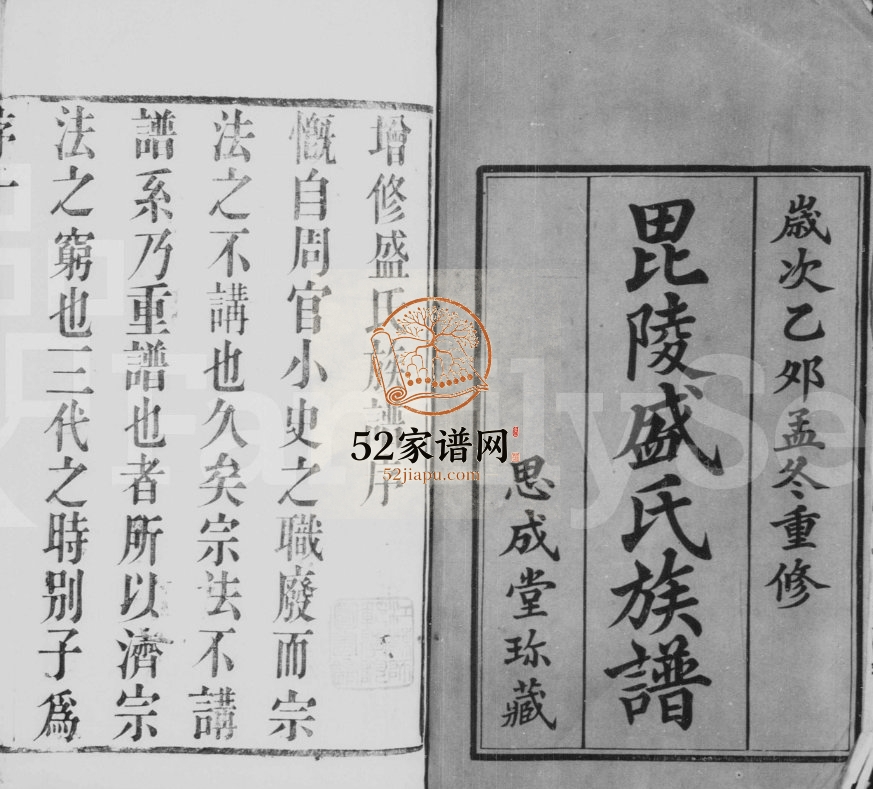 歲次乙夘孟冬重修
毘陵盛氏族譜
思成堂珎藏
增修盛氏族譜序
慨自周官小史之職廢而宗
法之不講也久矣宗法不講
譜系乃重譜也者所以濟宗
法之窮也三代之時別子爲
52家谱网
52jiapu.com
FamilySe